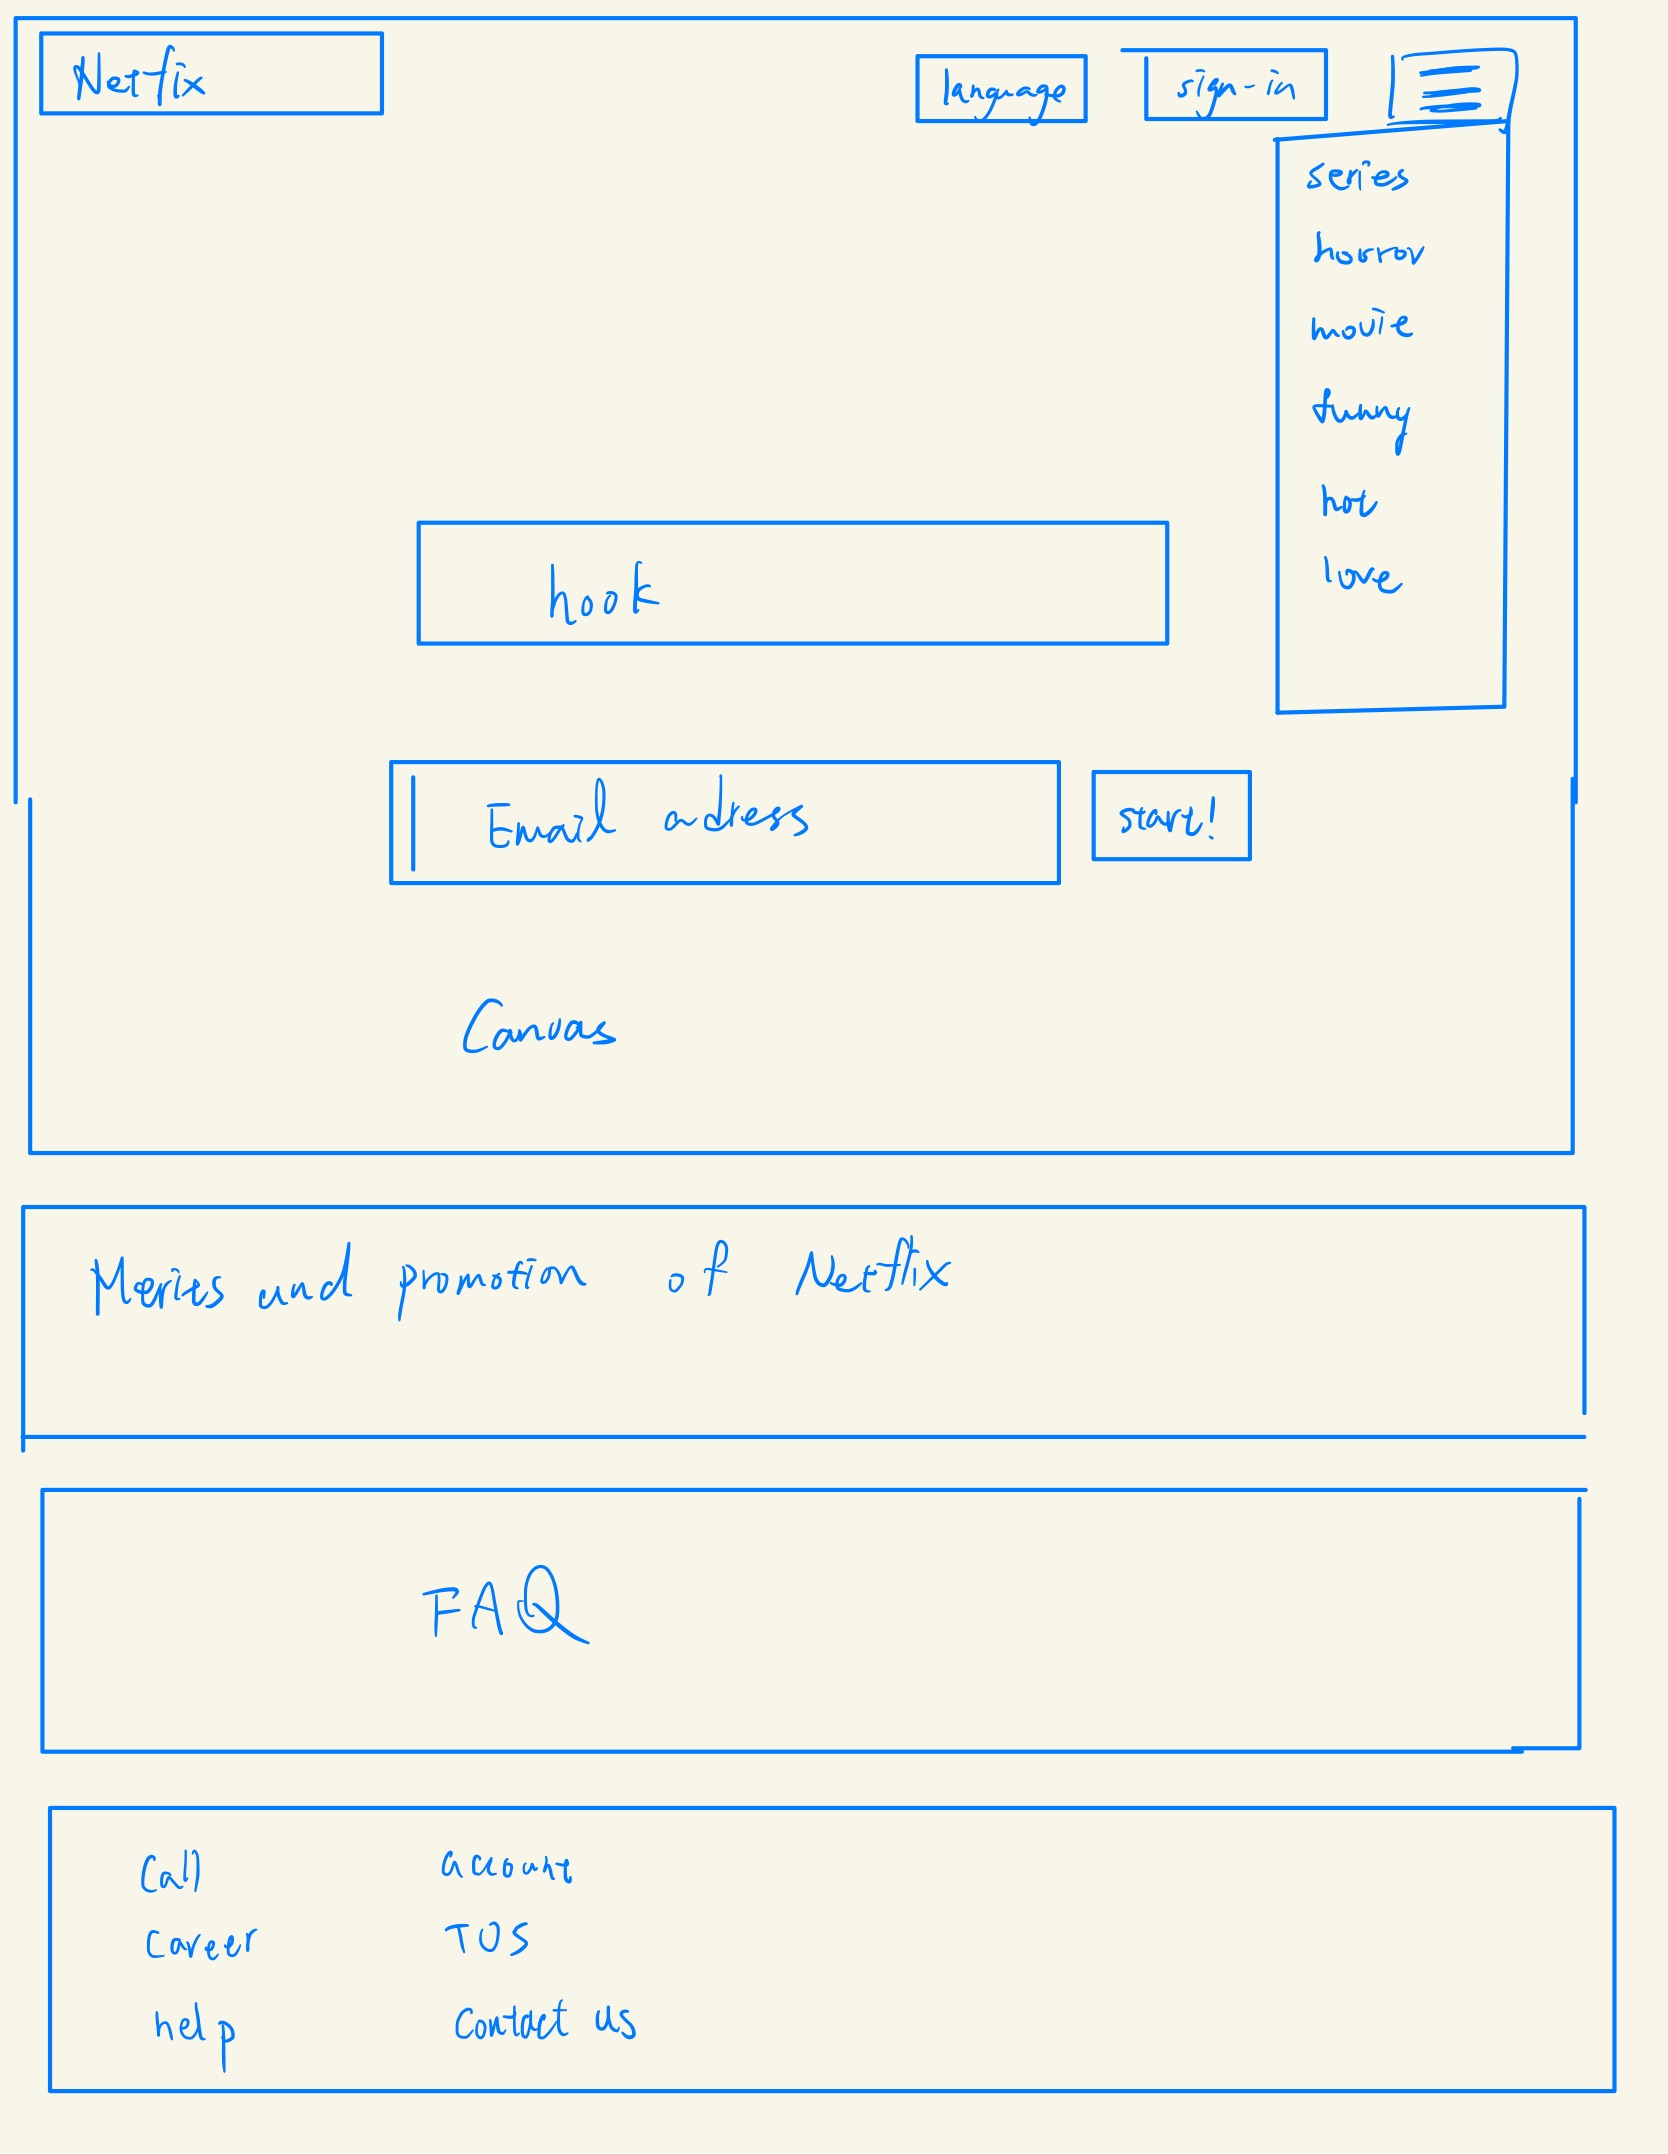 Netfix
language
sign-in
series
horror
movie
funny
hot
love
hook
Email adress
start!
Canvas
Merits and promotion of Netflix
FAQ
Call account
Career TOS
help Contact us